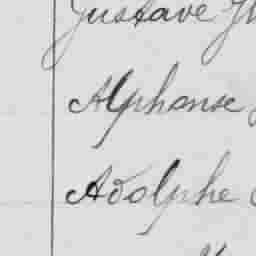 Gustave
Alphonse
Adolphe